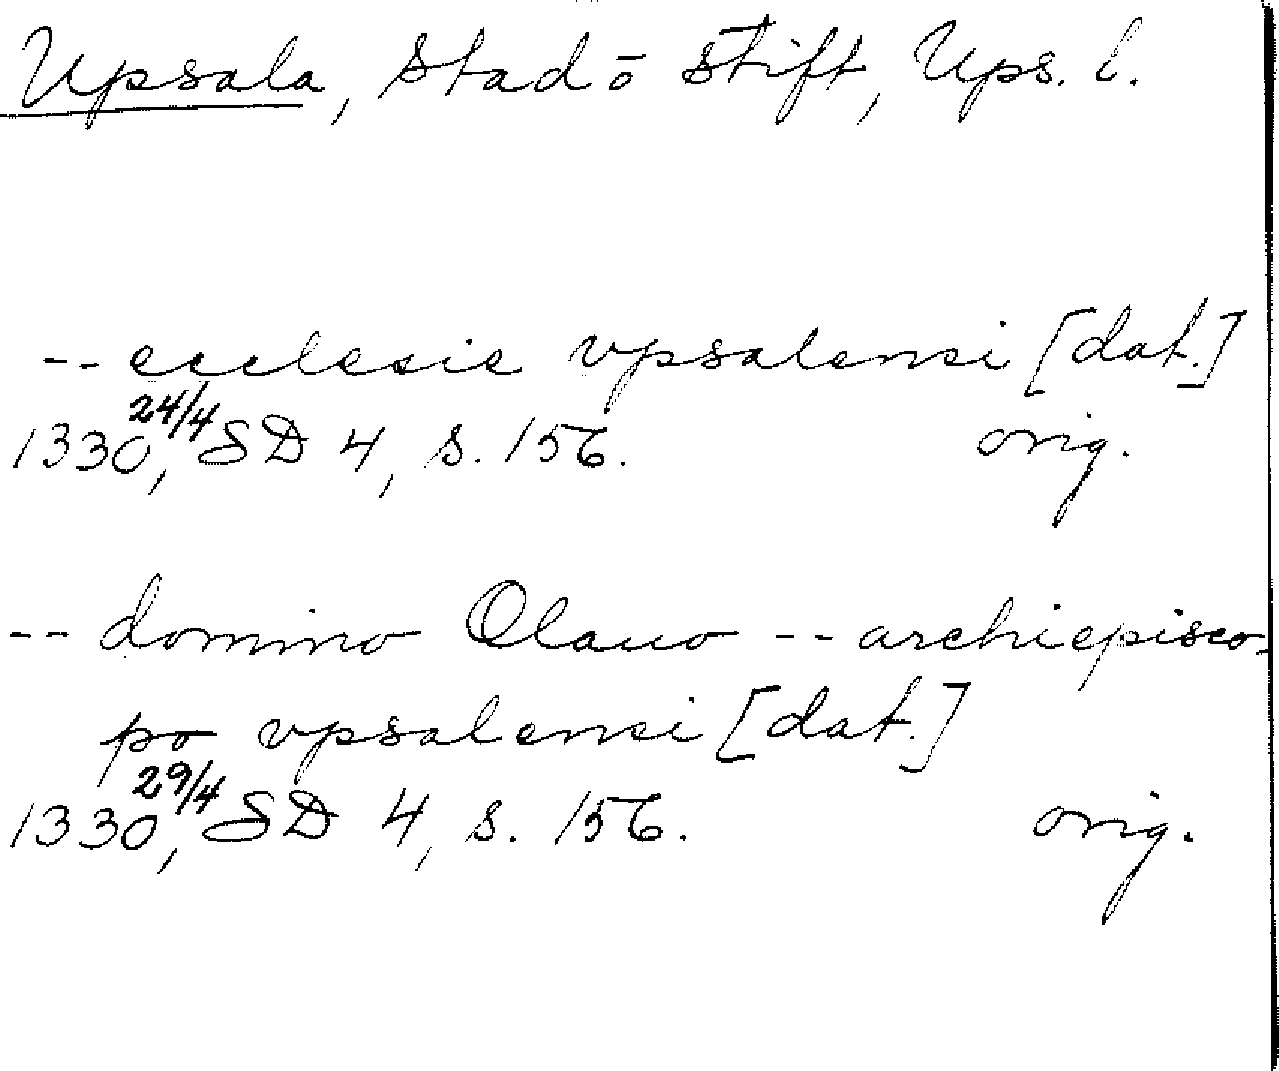 Upsala, stad ō stift, Ups. l.
-- ecclesie vpsalensi [dat.]
1330 24/4, SD 4, s. 156. orig.
-- domino Olauo -- archiepisco-
po vpsalensi [dat.]
1330 29/4, SD 4, s. 156. orig.